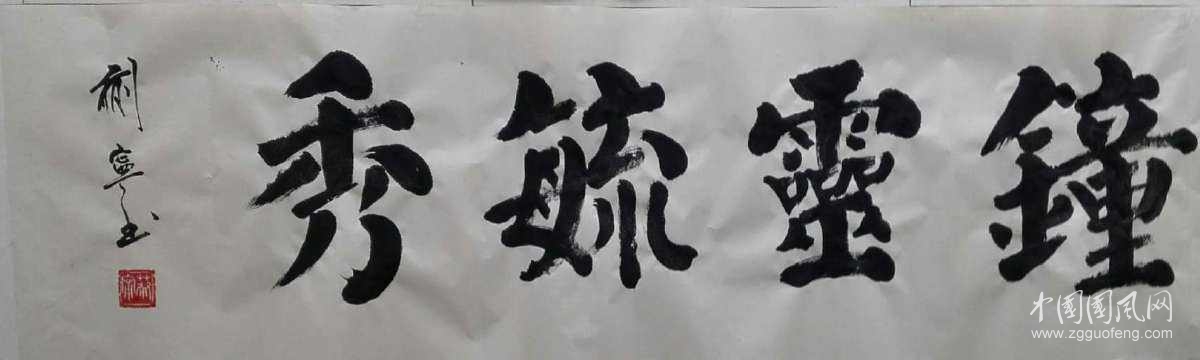 鐘靈毓秀
中国国风网
www.zgguofeng.com